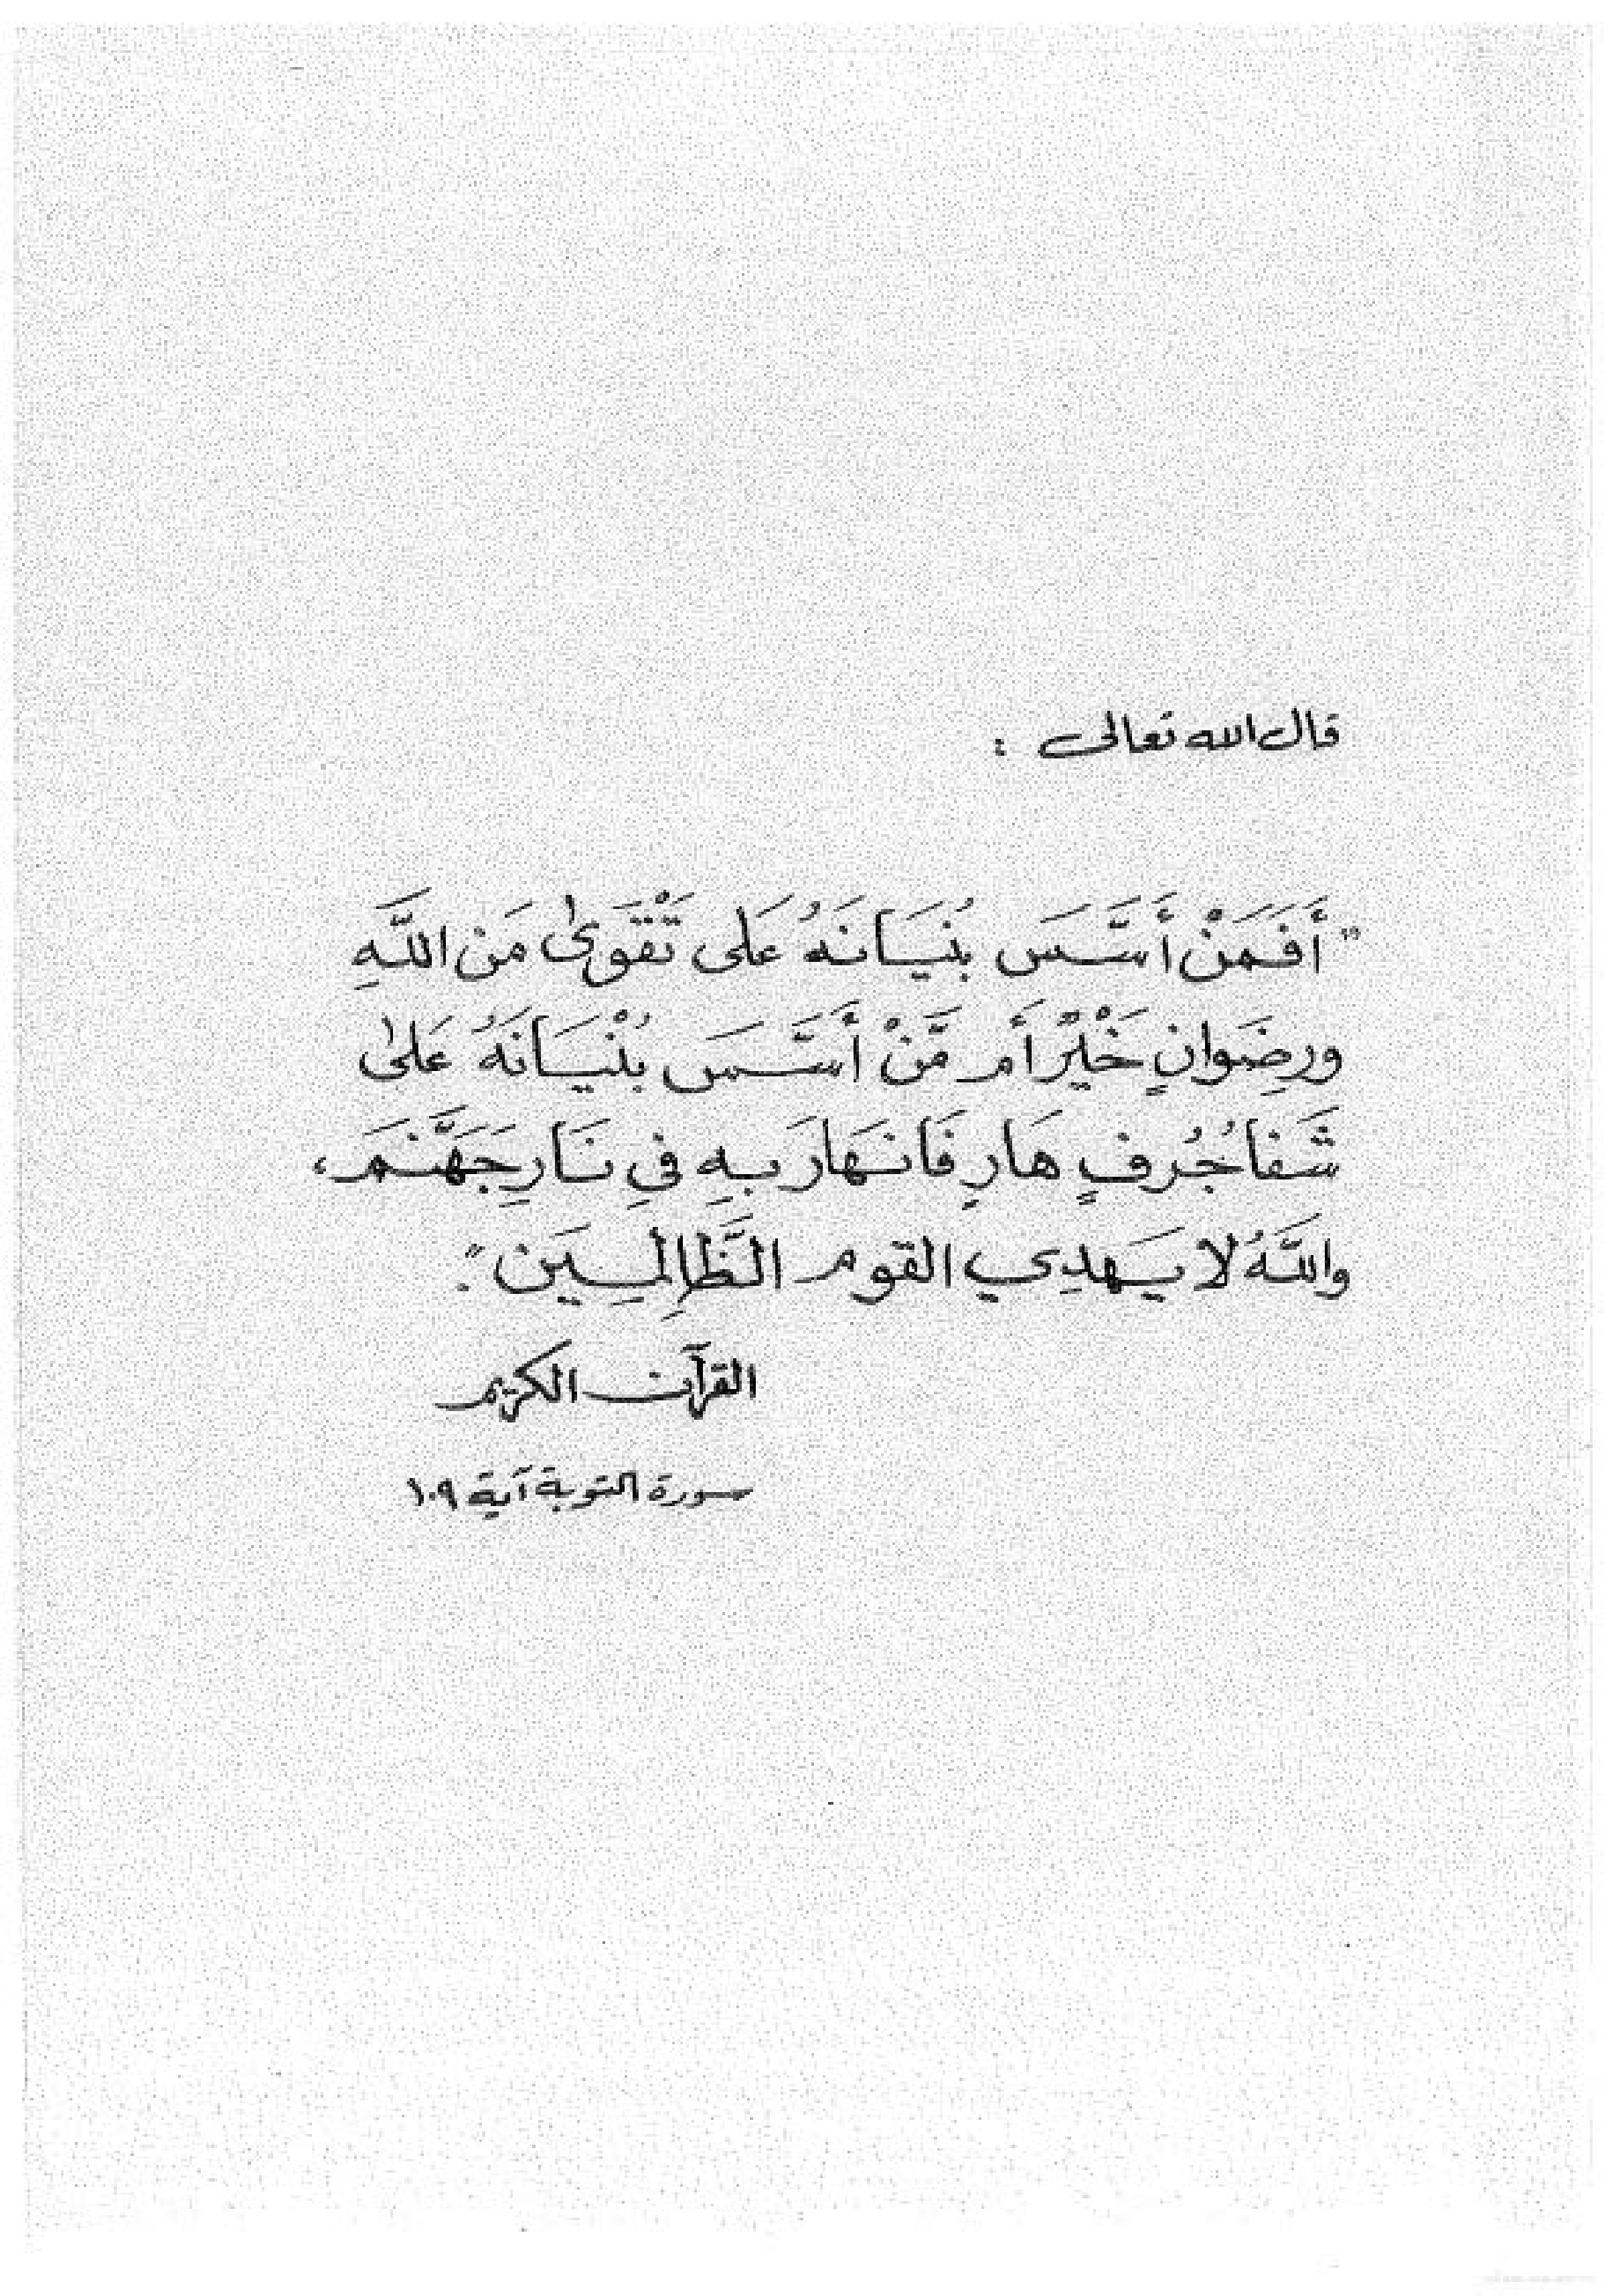 قال الله تعالى :
"أَفَمَنْ أَسَّسَ بُنيَانَهُ عَلى تَقْوَىٰ مَن اللَّهِ
ورِضَوانٍ خَيْرٌ أَم مَّنْ أَسَّسَ بُنْيَانَهُ عَلىٰ
شَفا جُرُفٍ هَارٍ فَانهَارَ بِهِ في نَارِ جَهَّنمَ،
واللَّهُ لا يَهدِي القوم الظَّالِمِيَن".
القرآن الكريم
سورة التوبة آية ١٠٩